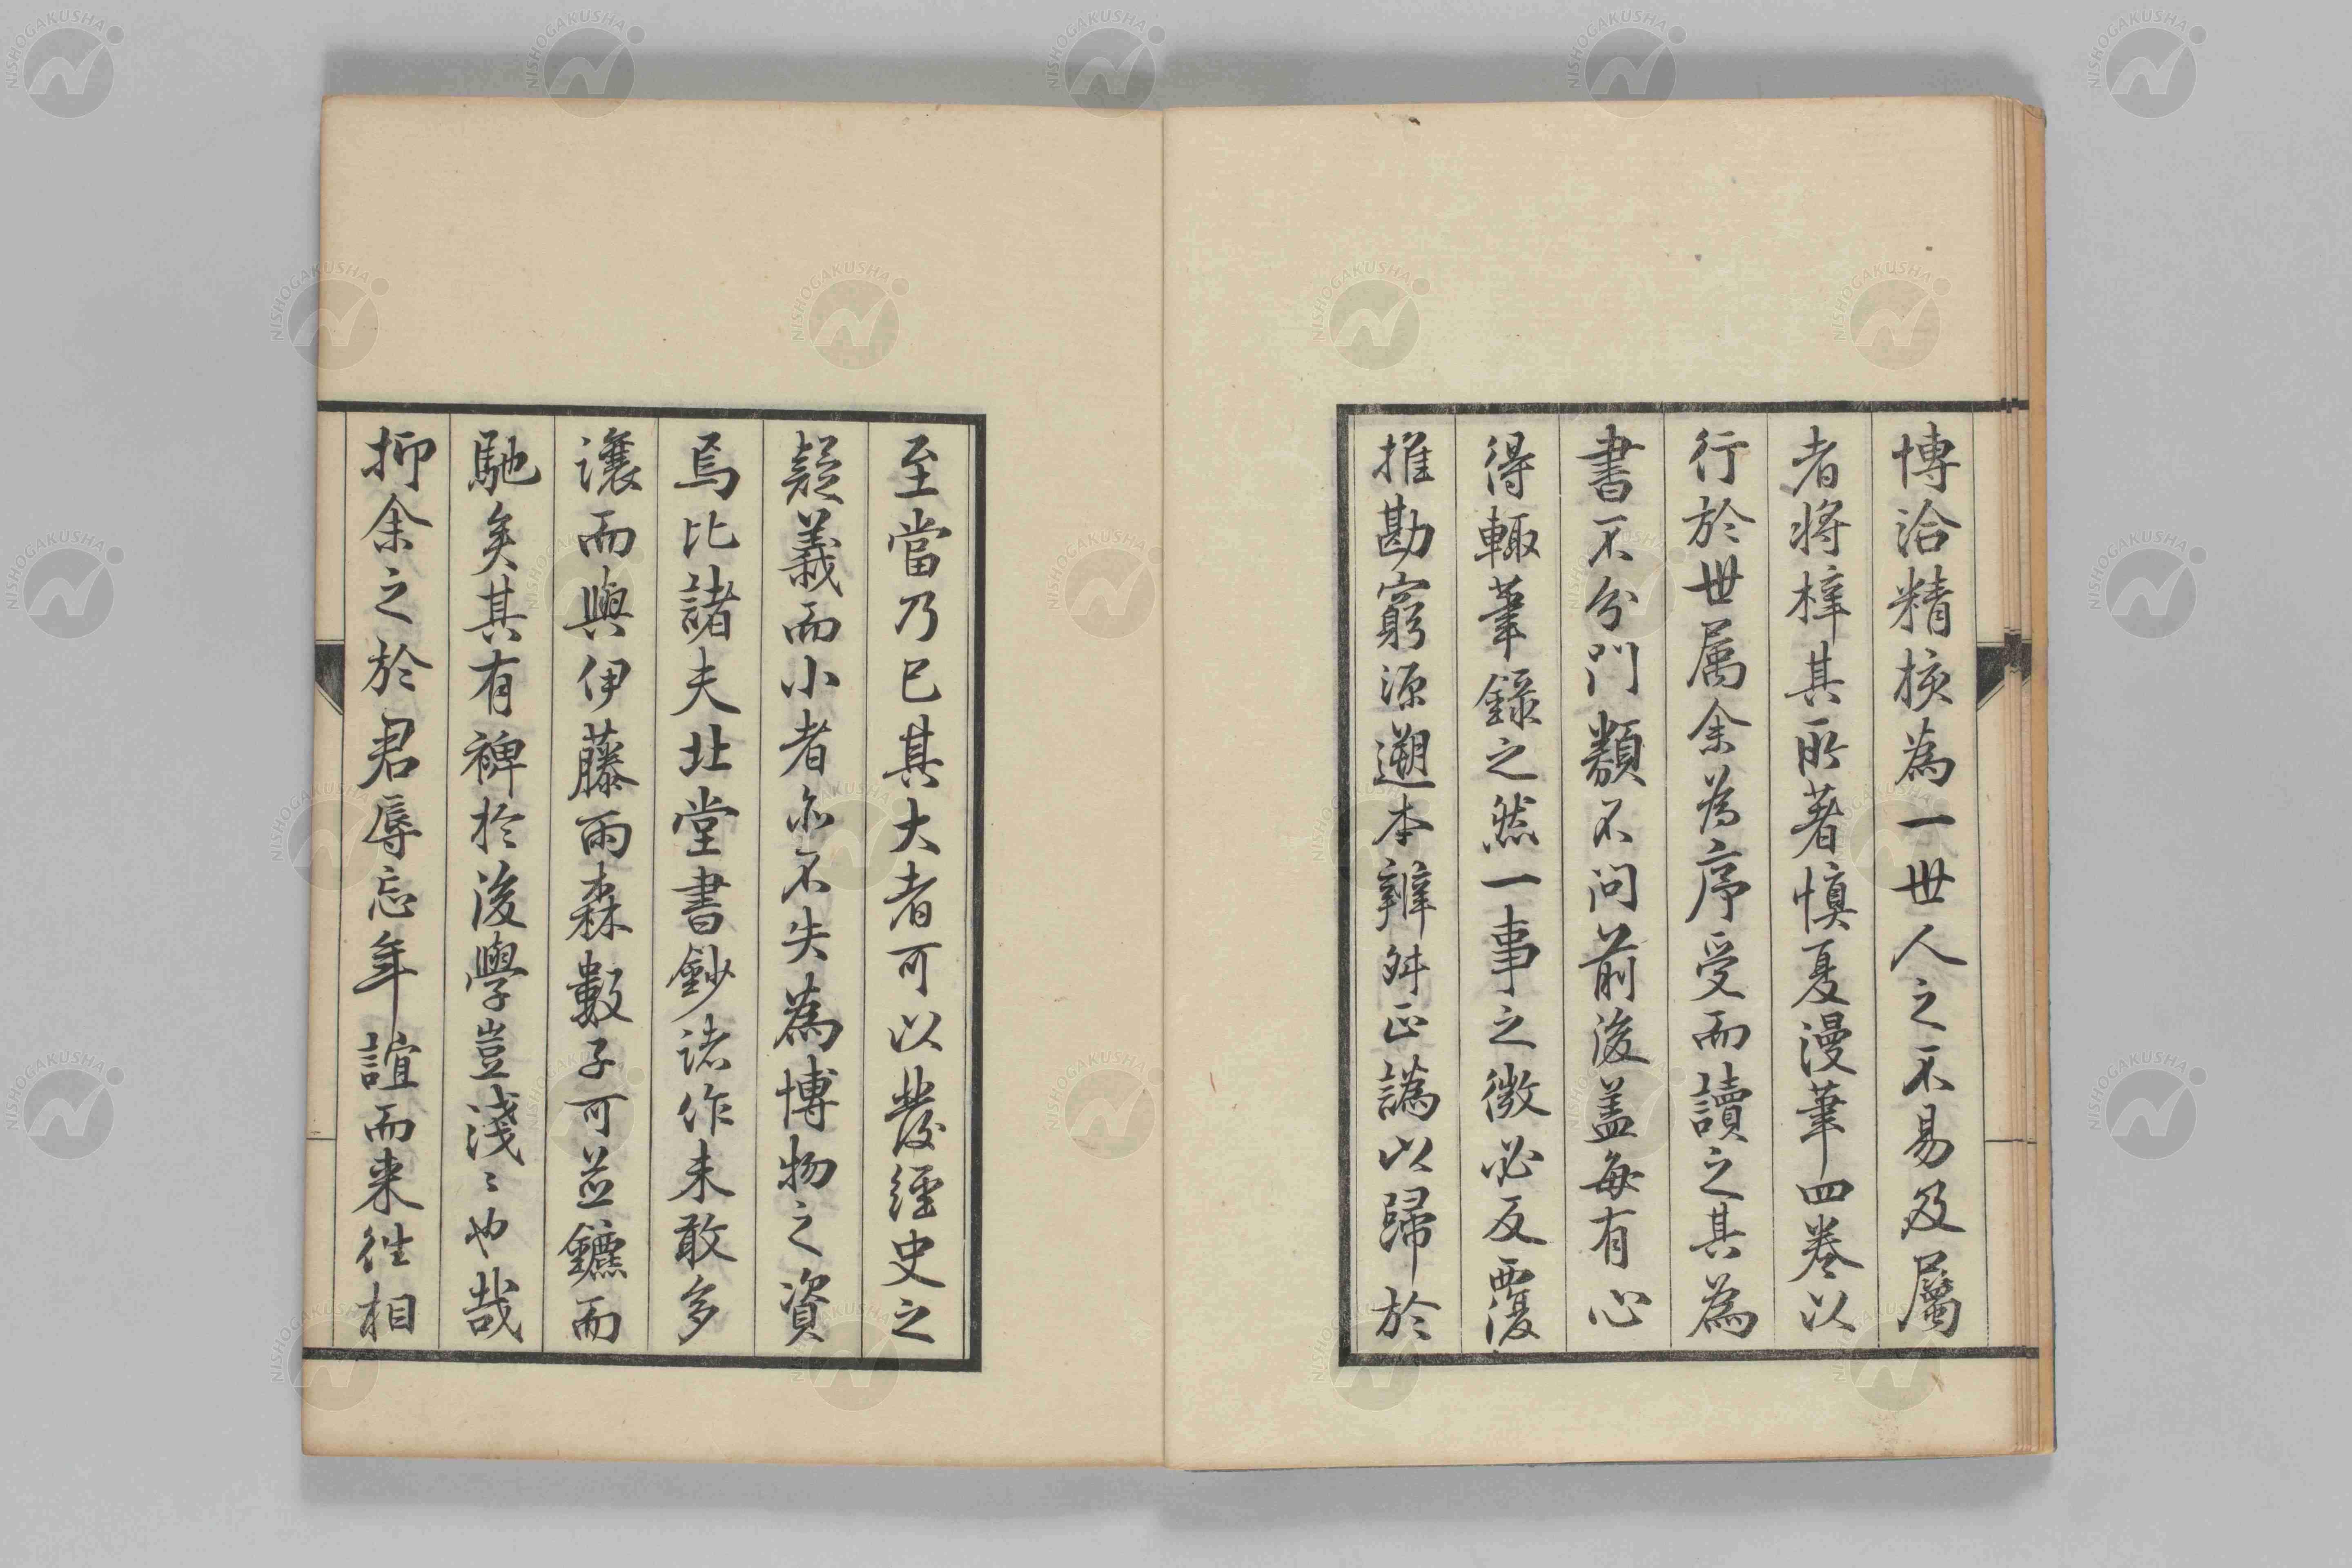 博洽精核為一世人之不易及屬
者將梓其所著慎夏漫筆四卷以
行於世属余為序受而讀之其為
書不分門類不问前後盖每有心
得輙筆錄之然一事之微必反覆
推勘窮源遡本辨舛正譌以歸於
至當乃已其大者可以發經史之
疑義而小者亦不失為博物之資
焉比諸夫北堂書鈔諸作未敢多
讓而與伊藤雨森數子可並鑣而
馳矣其有裨於後學豈淺〻也哉
抑余之於君辱忘年誼而来往相
NISHOGAKUSHA